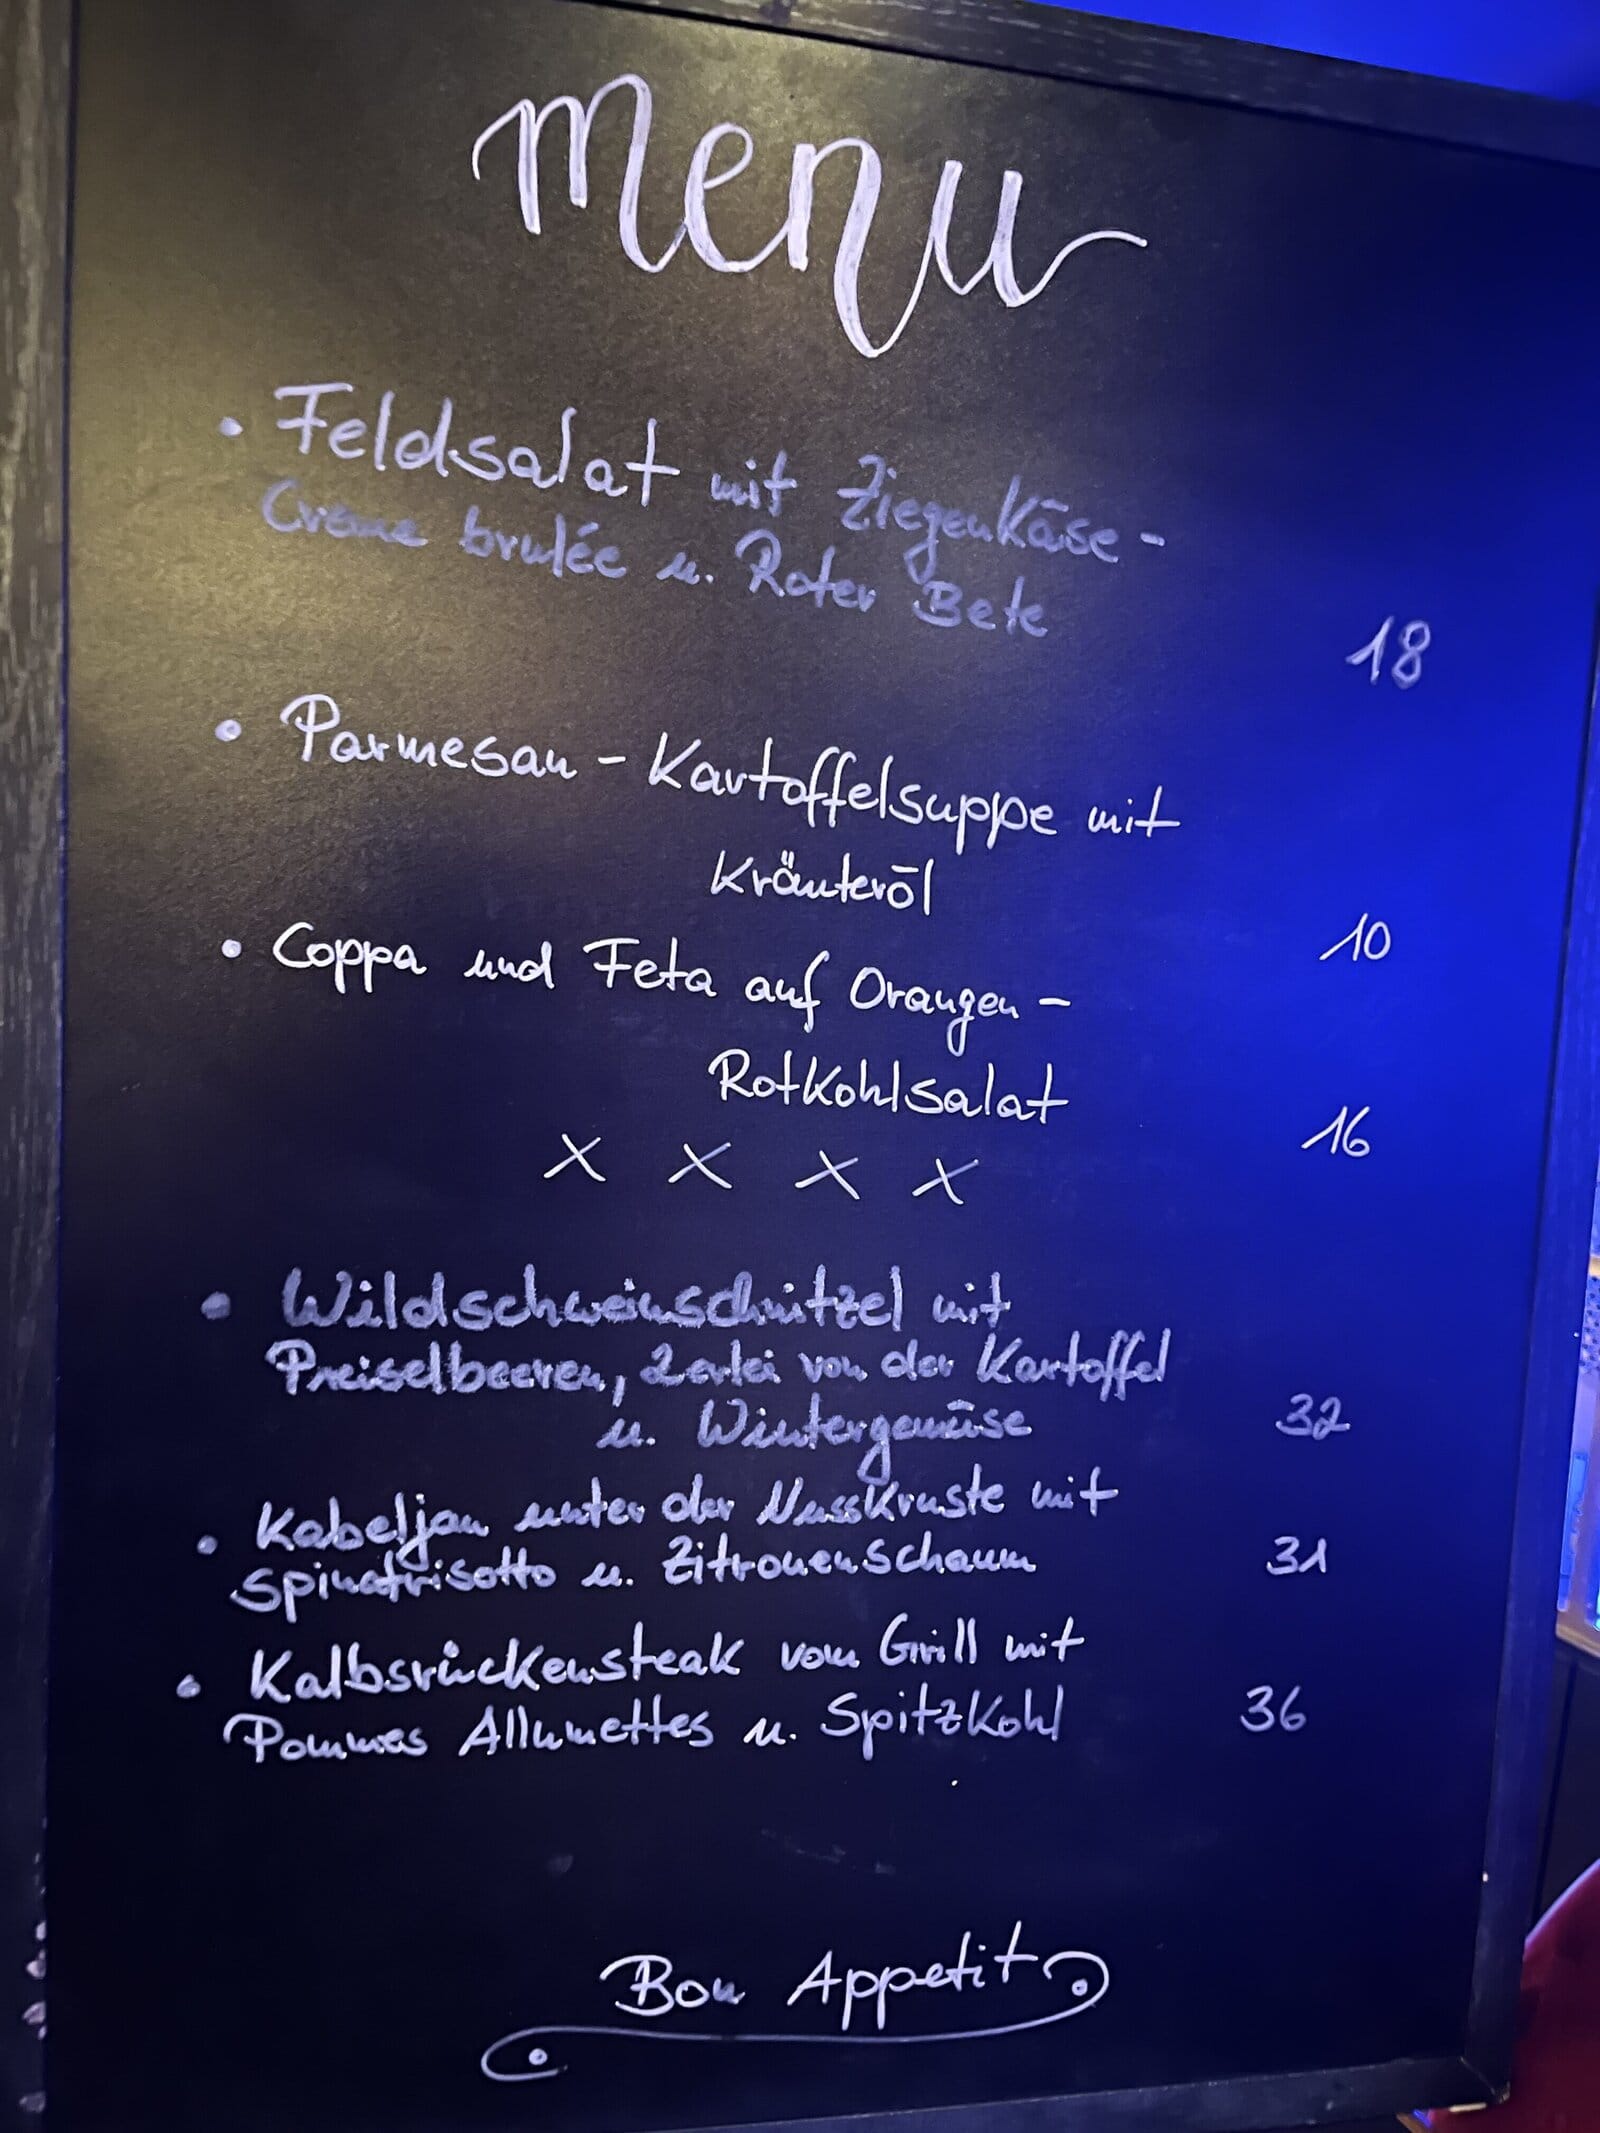 menu
• Feldsalat mit Ziegenkäse-
Creme brulée u. Roter Bete
18
• Parmesan - Kartoffelsuppe mit
Kräuteröl
10
• Coppa und Feta auf Orangen -
Rotkohlsalat
16
X X X X
• Wildschweinschnitzel mit
Preiselbeeren, 2erlei von der Kartoffel
u. Wintergemüse
32
• Kabeljau unter der Nusskruste mit
Spinatrisotto u. Zitronenschaum
31
• Kalbsrückensteak vom Grill mit
Pommes Allumettes u. Spitzkohl
36
Bon Appetit